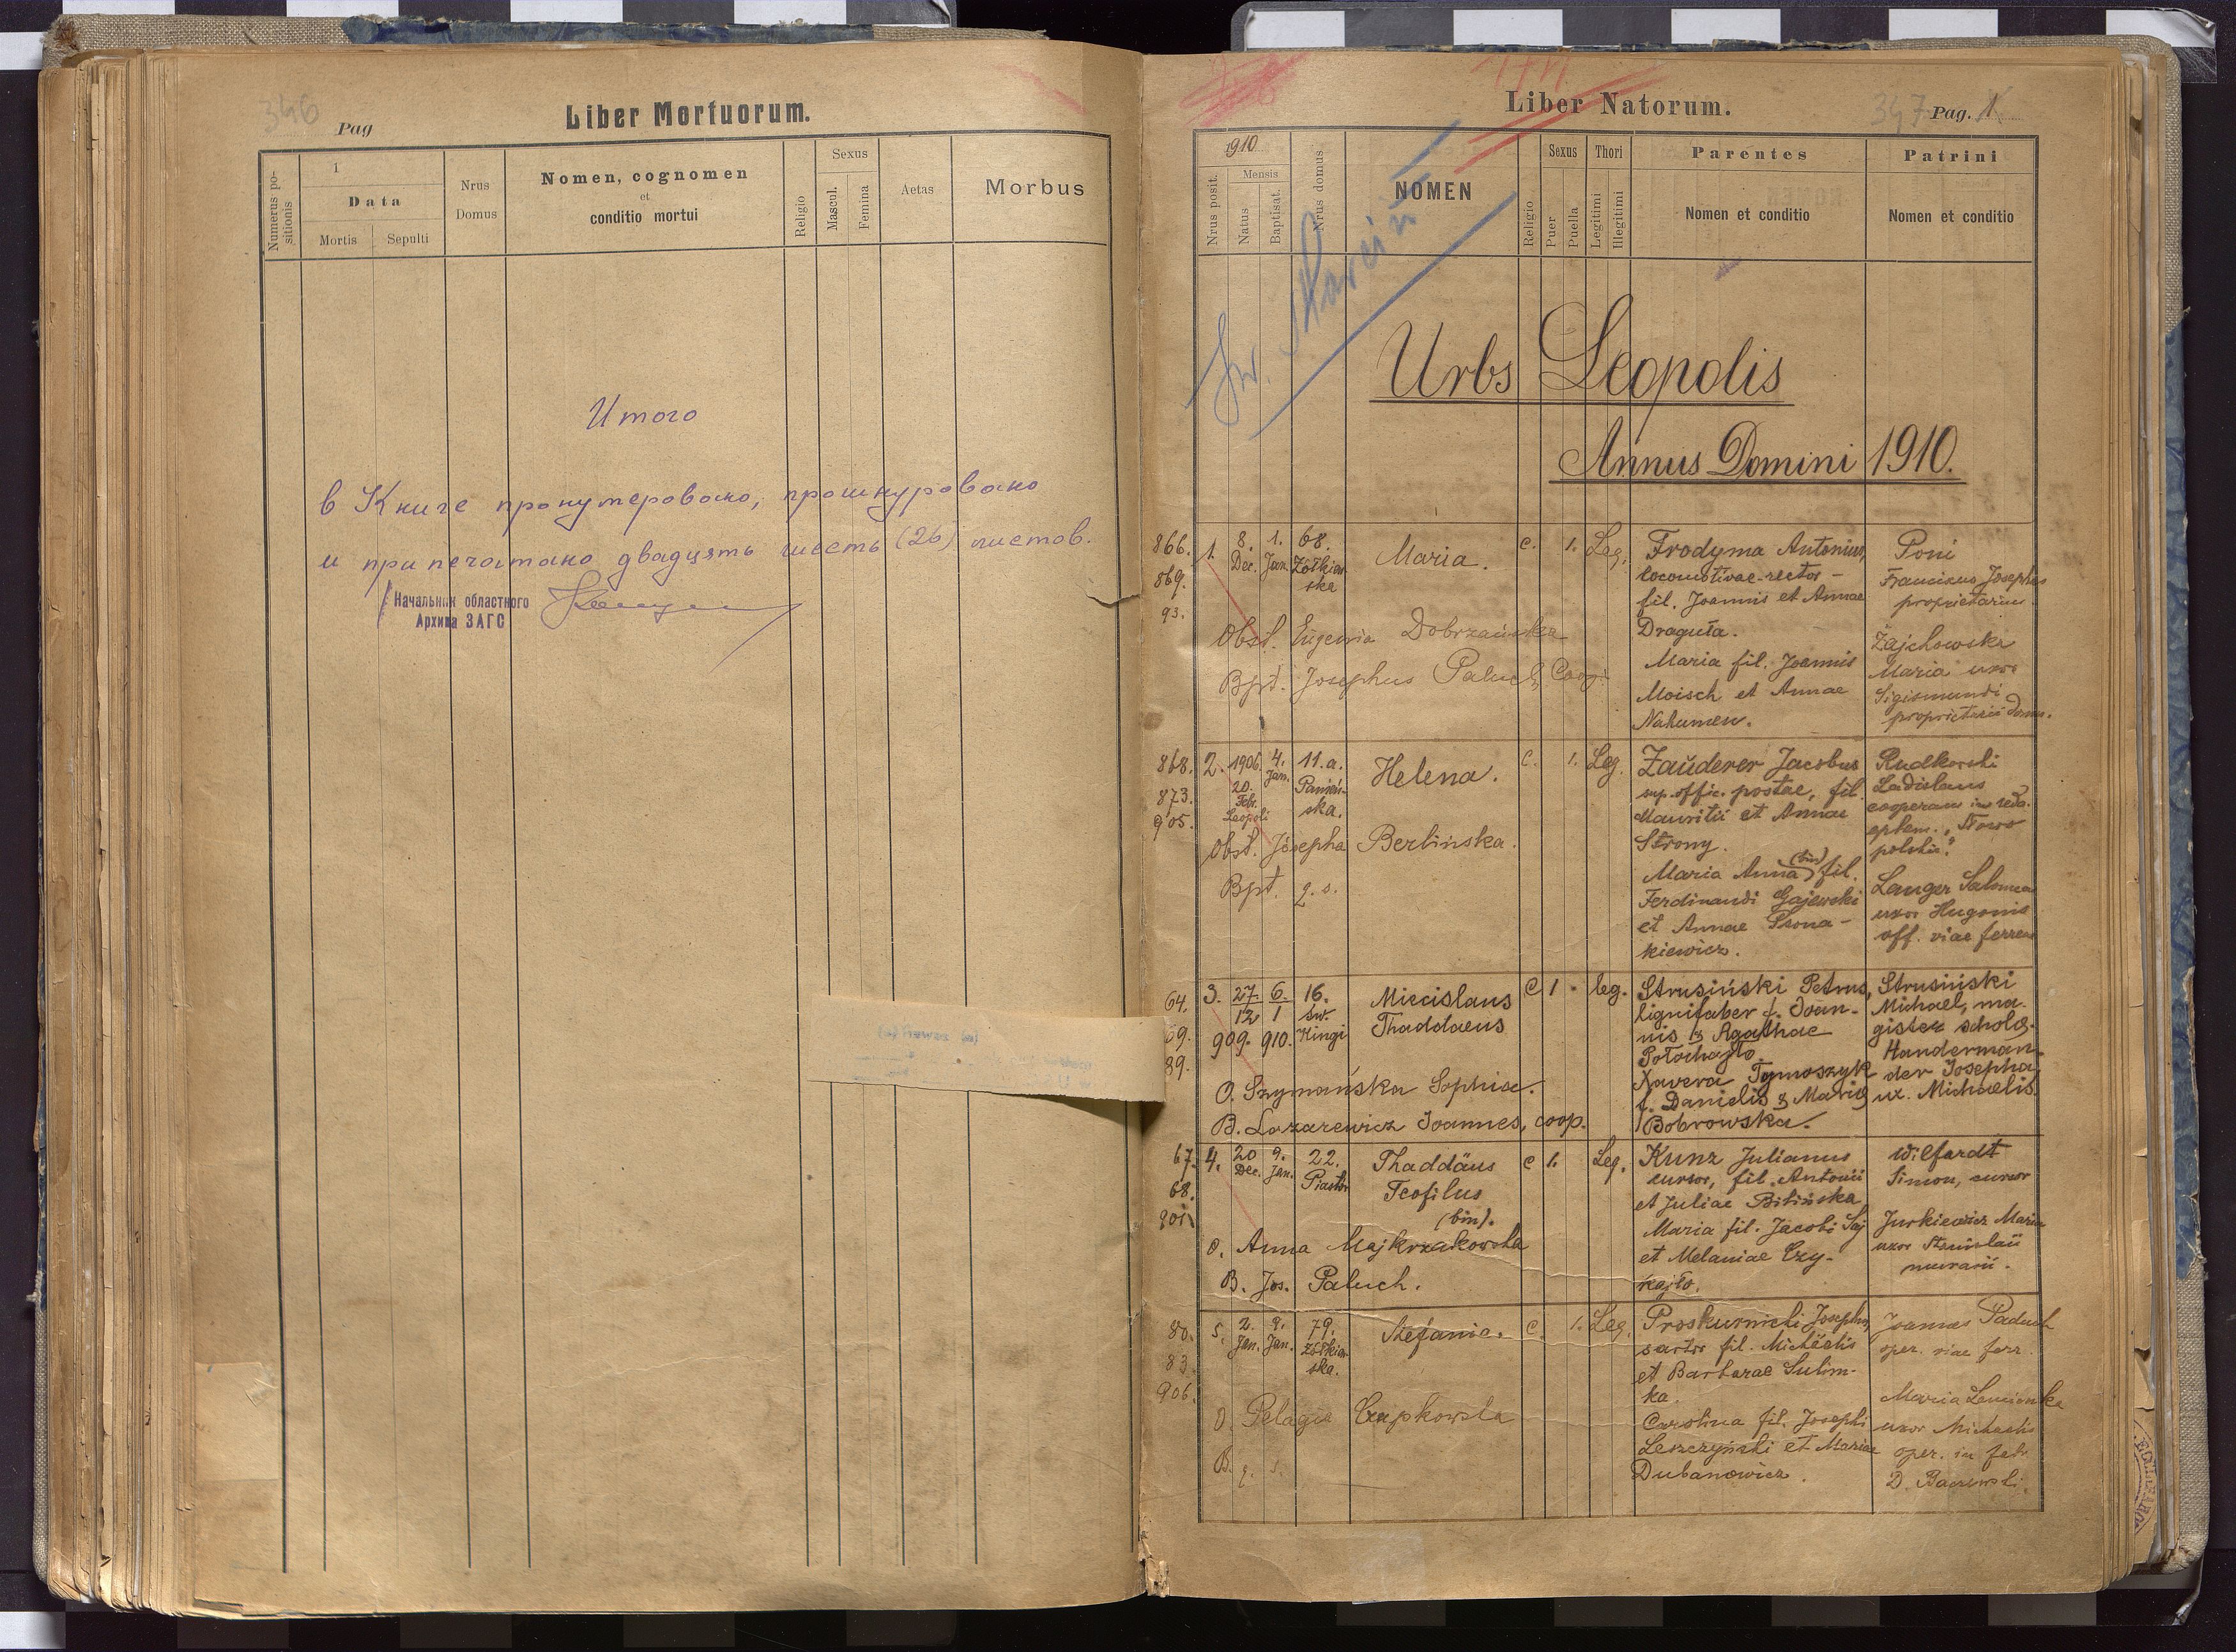 346
Pag
Liber Mortuorum.
Numerus positionis
1
Data
Mortis
Sepulti
Nrus Domus
Nomen, cognomen
et
conditio mortui
Religio
Sexus
Mascul.
Femina
Aetas
Morbus
Итого
в Книге пронумеровано, прошнуровано
и припечатано двадцять шесть (26) листов.
Начальник областного
Архива ЗАГС
Liber Natorum.
347 Pag. 1
1910
Nrus posit.
Mensis
Natus
Baptisat.
Nrus domus
NOMEN
Religio
Sexus
Puer
Puella
Thori
Legitimi
Illegitimi
Parentes
Nomen et conditio
Patrini
Nomen et conditio
Św. Marcin
Urbs Leopolis
Annus Domini 1910.
866.
869.
93.
1. 8. Dec. 1. Jan. 68. Żółkiewska
Maria.
c. 1. Leg.
Frodyma Antonius,
locomotivae-rector -
fil. Joannis et Annae
Draguła.
Maria fil. Joannis
Moisch et Annae
Nahumen.
Poni
Franciscus Josephus
Zajchowska
Maria uxor
Sigismundi
proprietarii domu.
Obst. Eugenia Dobrzańska
Bpt. Josephus Paluch, Coop.
868.
873.
905.
2. 1906 20. Febr. Leopoli 4. Jan. 11.a. Panieńska.
Helena.
c. 1. Leg.
Zauderer Jacobus
sup. offic. postae, fil.
Mauritii et Annae
Strony.
Maria Anna (bin) fil.
Ferdinandi Gajewski
et Annae Prona-
kiewicz.
Rudkowski
Ladislaus
Langer Salomea
uxor Hugonis
off. viae ferreae
Obst. Josepha Berlinska.
Bpt. q. s.
64.
69.
89.
3. 27. 12 909. 6. 1 910. 16. św. Kingi
Miecislaus
Thaddaeus
C 1 · leg.
Strusiński Petrus,
lignifaber f. Joan-
nis & Agathae
Potochajło.
Xavera Tymoszyk
f. Danielis & Mariae
Bobrowska.
Strusiński
Michael, ma-
gister schola.
Handerman-
der Josepha
ux. Michaelis.
O. Szymańska Sophia.
B. Lazarewicz Joannes, coop.
67.
68.
901.
4. 20 Dec. 9. Jan. 22. Piastów
Thaddäus
Teofilus
(bin).
c 1. Leg.
Kunz Julianus
cursor, fil. Antonii
et Juliae Bilińska
Maria fil. Jacobi Saj
et Melaniae Czy-
kajło.
Wilfardt
Simon, cursor
Jurkiewicz Maria
uxor Stanislai
murarii.
O. Anna Majkrzakowska
B. Jos. Paluch.
80.
83.
906.
5. 2. Jan. 9. Jan. 79. Żółkiewska.
Stefania.
c. 1. Leg.
Proskurnicki Josephus,
sartor fil. Michaelis
et Barbarae Sulim-
ka.
Carolina fil. Josephi
Leszczyński et Mariae
Dubanowicz.
Joannes Paduch
oper. viae ferr.
Maria
uxor Michaelis
oper. in fabr.
D. Baczewski.
O. Pelagia Czapkowska
B. q. s.